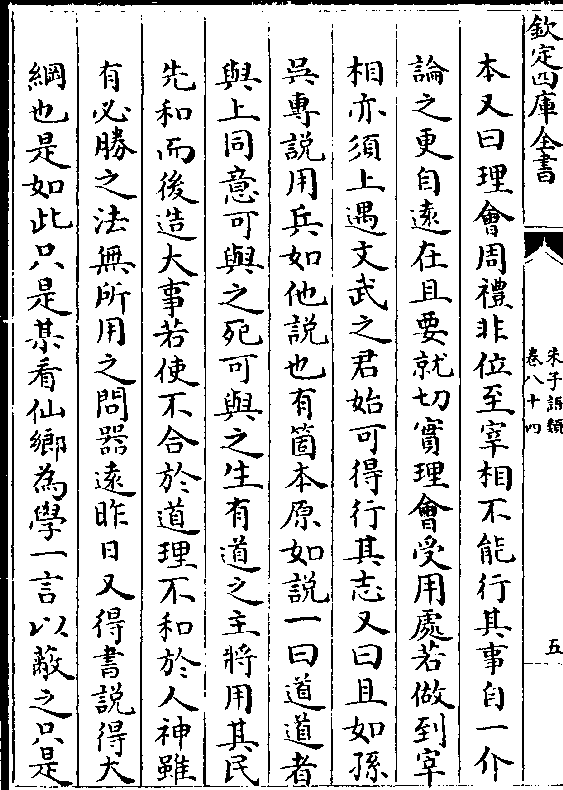 欽定四庫全書
朱子語類
卷八十四
五
本又曰理會周禮非位至宰相不能行其事自一介
論之更自遠在且要就切實理會受用處若做到宰
相亦須上遇文武之君始可得行其志又曰且如孫
吳專說用兵如他說也有箇本原如說一曰道道者
與上同意可與之死可與之生有道之主將用其民
先和而後造大事若使不合於道理不和於人神雖
有必勝之法無所用之問器遠昨日又得書說得大
綱也是如此只是某看仙鄉為學一言以蔽之只是